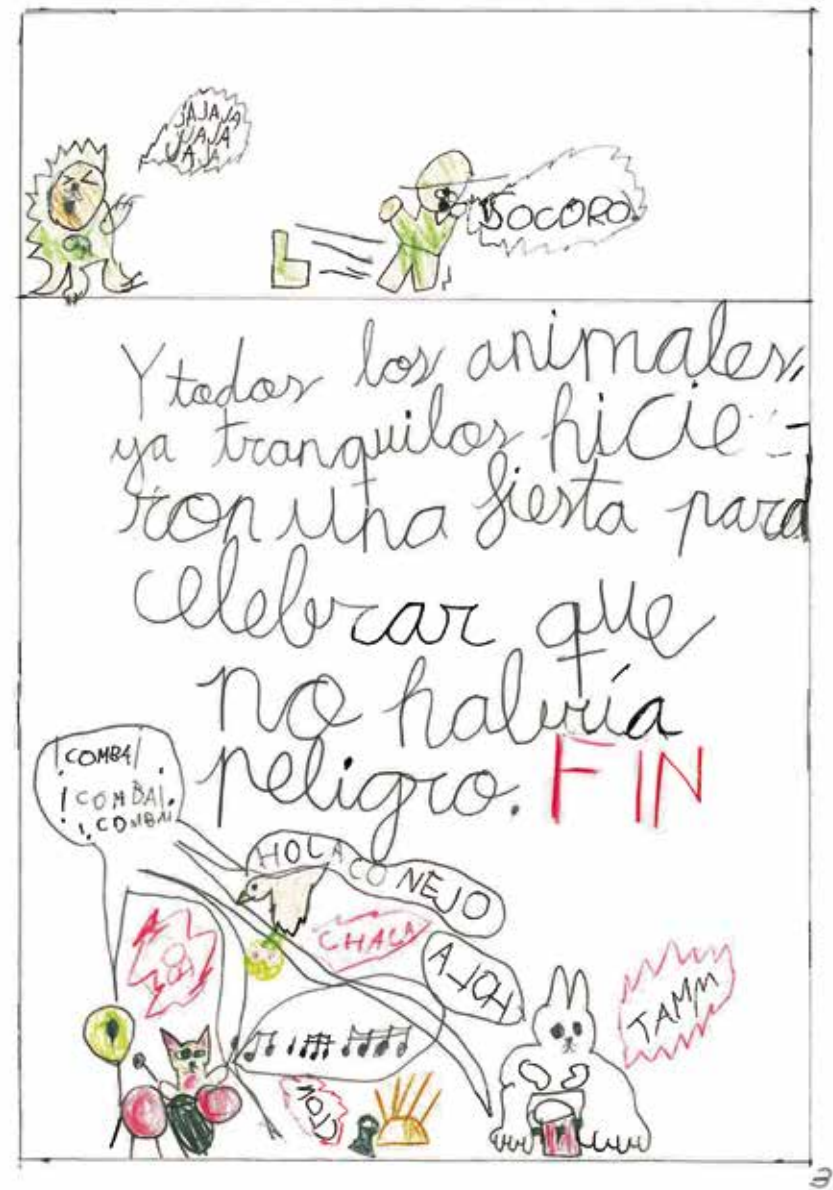 JAJAJA
JUAJA
JAJA
SOCORO
Y todos los animales,
ya tranquilos hicie-
ron una fiesta para
celebrar que
no habría
peligro. FIN
¡COMBA!
¡COMBA!
¡COMBA!
HOLA CONEJO
CHACA
HOLA
TAMM